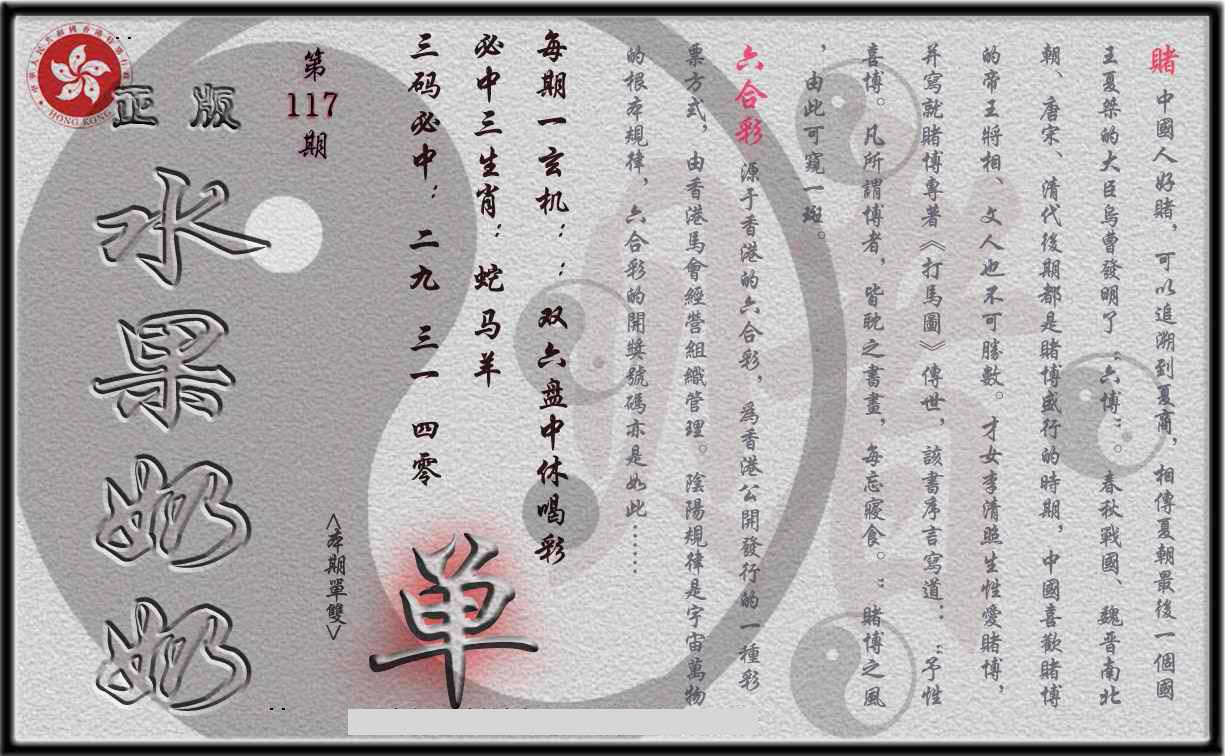 賭 中國人好賭，可以追溯到夏商，相傳夏朝最後一個國
王夏桀的大臣烏曹發明了“六博”。春秋戰國、魏晋南北
朝、唐宋、清代後期都是賭博盛行的時期，中國喜歡賭博
的帝王將相、文人也不可勝數。才女李清照生性愛賭博，
并寫就賭博專著《打馬圖》傳世，該書序言寫道：“予性
喜博。凡所謂博者，皆耽之書畫，每忘寢食。”賭博之風
，由此可窺一斑。
六合彩 源于香港的六合彩，爲香港公開發行的一種彩
票方式，由香港馬會經營組織管理。陰陽規律是宇宙萬物
的根本規律，六合彩的開獎號碼亦是如此……
每期一玄机：：双六盘中休喝彩
必中三生肖：蛇马羊
三码必中：二九 三一 四零
第
117
期
<本期單雙>
单
正版
水果奶奶
HONG KONG